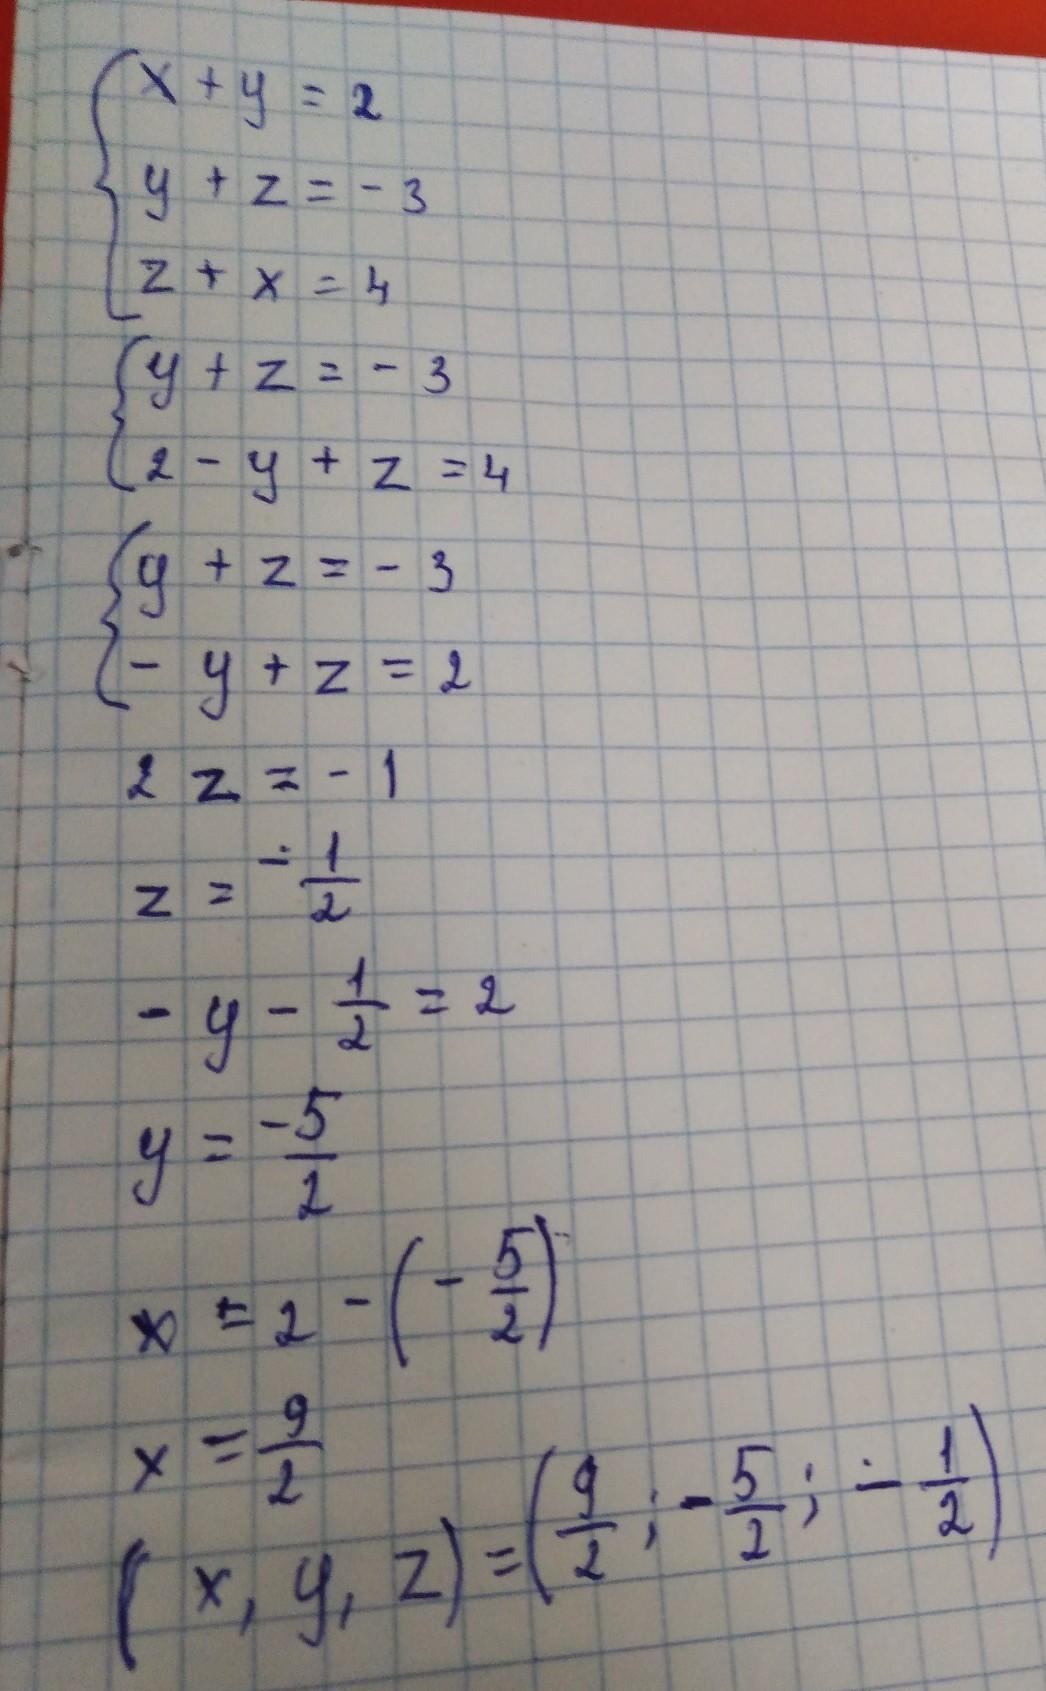 x + y = 2
y + z = - 3
z + x = 4
y + z = - 3
2 - y + z = 4
y + z = - 3
- y + z = 2
2 z = - 1
z = - 1/2
- y - 1/2 = 2
y = -5/2
x = 2 - (- 5/2)
x = 9/2
(x, y, z) = (9/2; - 5/2; - 1/2)